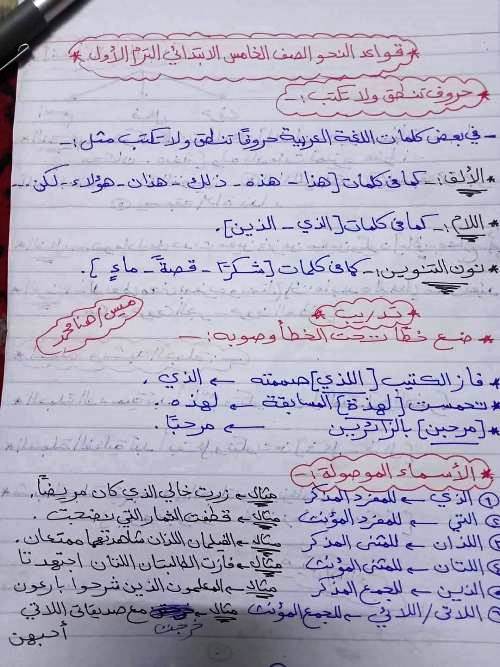 * قواعد النحو الصف الخامس الابتدائي الترم الأول *
* حروف تنطق ولا تكتب :-
- في بعض كلمات اللغة العربية حروفًا تنطق ولا تكتب مثل :-
* الألف :- كما في كلمات [هذا - هذه - ذلك - هذان - هؤلاء - لكن ...
* اللام :- كما في كلمات [الذي - الذين].
* نون التنوين :- كما في كلمات [شكرًا - قصةً - ماءٍ].
* تدريب *
ميس / هنا محمد
* ضع خطًا تحت الخطأ وصوبه :-
* فاز الكتيب [اللذي] صممته ← الذي .
* تحمست [لهاذة] المسابقة ← لهذه .
* [مرحبن] بالزائرين ← مرحبًا .
* الأسماء الموصولة :-
① الذي ← للمفرد المذكر مثال ← زرت خالي الذي كان مريضًا.
② التي ← للمفرد المؤنث مثال ← قطفت الثمار التي نضجت .
③ اللذان ← للمثنى المذكر مثال ← الفيلمان اللذان شاهدتهما ممتعان .
④ اللتان ← للمثنى المؤنث مثال ← فازت الطالبتان اللتان اجتهدتا
⑤ الذين ← للجمع المذكر مثال ← المعلمون الذين شرحوا بارعون
⑥ اللاتي / اللائي ← للجمع المؤنث مثال ← خرجت مع صديقاتي اللاتي
أحبهن